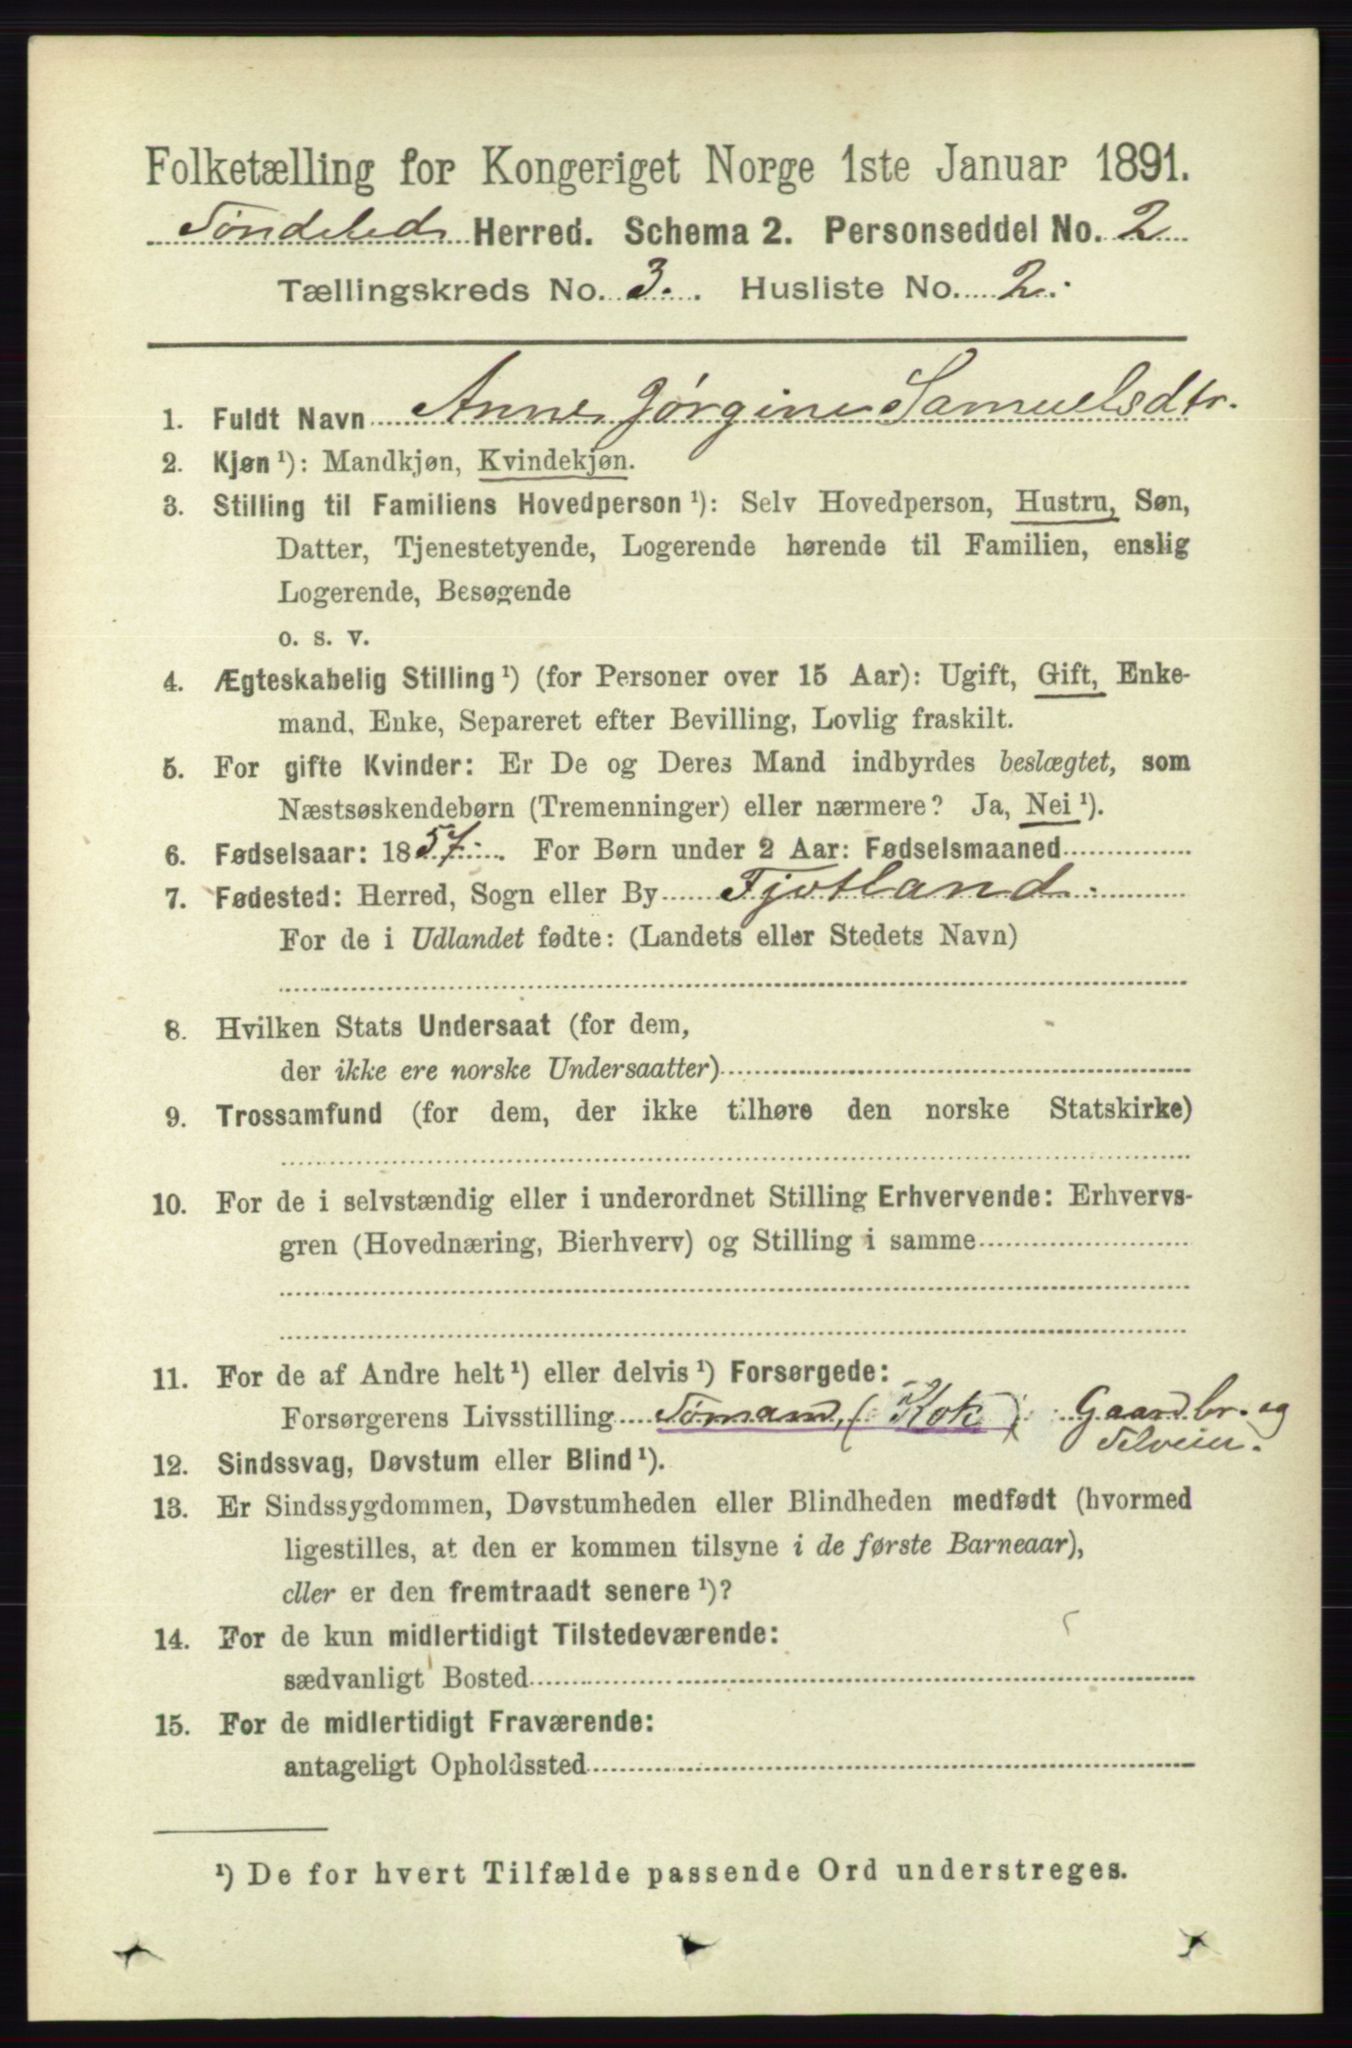 Folketælling for Kongeriget Norge 1ste Januar 1891.
Søndeled Herred. Schema 2. Personseddel No. 2
Tællingskreds No. 3. Husliste No. 2.
1. Fuldt Navn Anne Jørgine Samuelsdtr.
2. Kjøn ¹): Mandkjøn, Kvindekjøn.
3. Stilling til Familiens Hovedperson ¹): Selv Hovedperson, Hustru, Søn,
Datter, Tjenestetyende, Logerende hørende til Familien, enslig
Logerende, Besøgende
o. s. v.
4. Ægteskabelig Stilling ¹) (for Personer over 15 Aar): Ugift, Gift, Enke-
mand, Enke, Separeret efter Bevilling, Lovlig fraskilt.
5. For gifte Kvinder: Er De og Deres Mand indbyrdes beslægtet, som
Næstsøskendebørn (Tremenninger) eller nærmere? Ja, Nei ¹).
6. Fødselsaar: 1857. For Børn under 2 Aar: Fødselsmaaned
7. Fødested: Herred, Sogn eller By Fjotland.
For de i Udlandet fødte: (Landets eller Stedets Navn)
8. Hvilken Stats Undersaat (for dem,
der ikke ere norske Undersaatter)
9. Trossamfund (for dem, der ikke tilhøre den norske Statskirke)
10. For de i selvstændig eller i underordnet Stilling Erhvervende: Erhvervs-
gren (Hovednæring, Bierhverv) og Stilling i samme
11. For de af Andre helt ¹) eller delvis ¹) Forsørgede:
Forsørgerens Livsstilling Sømand, (Kok) Gaardbr. og
Selveier.
12. Sindssvag, Døvstum eller Blind ¹).
13. Er Sindssygdommen, Døvstumheden eller Blindheden medfødt (hvormed
ligestilles, at den er kommen tilsyne i de første Barneaar),
eller er den fremtraadt senere ¹)?
14. For de kun midlertidigt Tilstedeværende:
sædvanligt Bosted
15. For de midlertidigt Fraværende:
antageligt Opholdssted
¹) De for hvert Tilfælde passende Ord understreges.